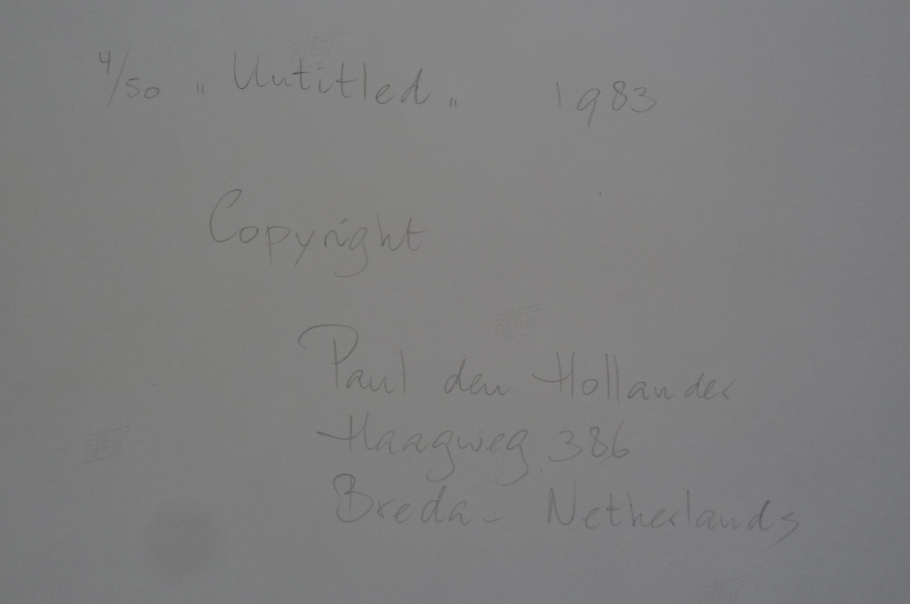 4/50 „ Untitled „ 1983
Copyright
Paul den Hollander
Haagweg 386
Breda - Netherlands